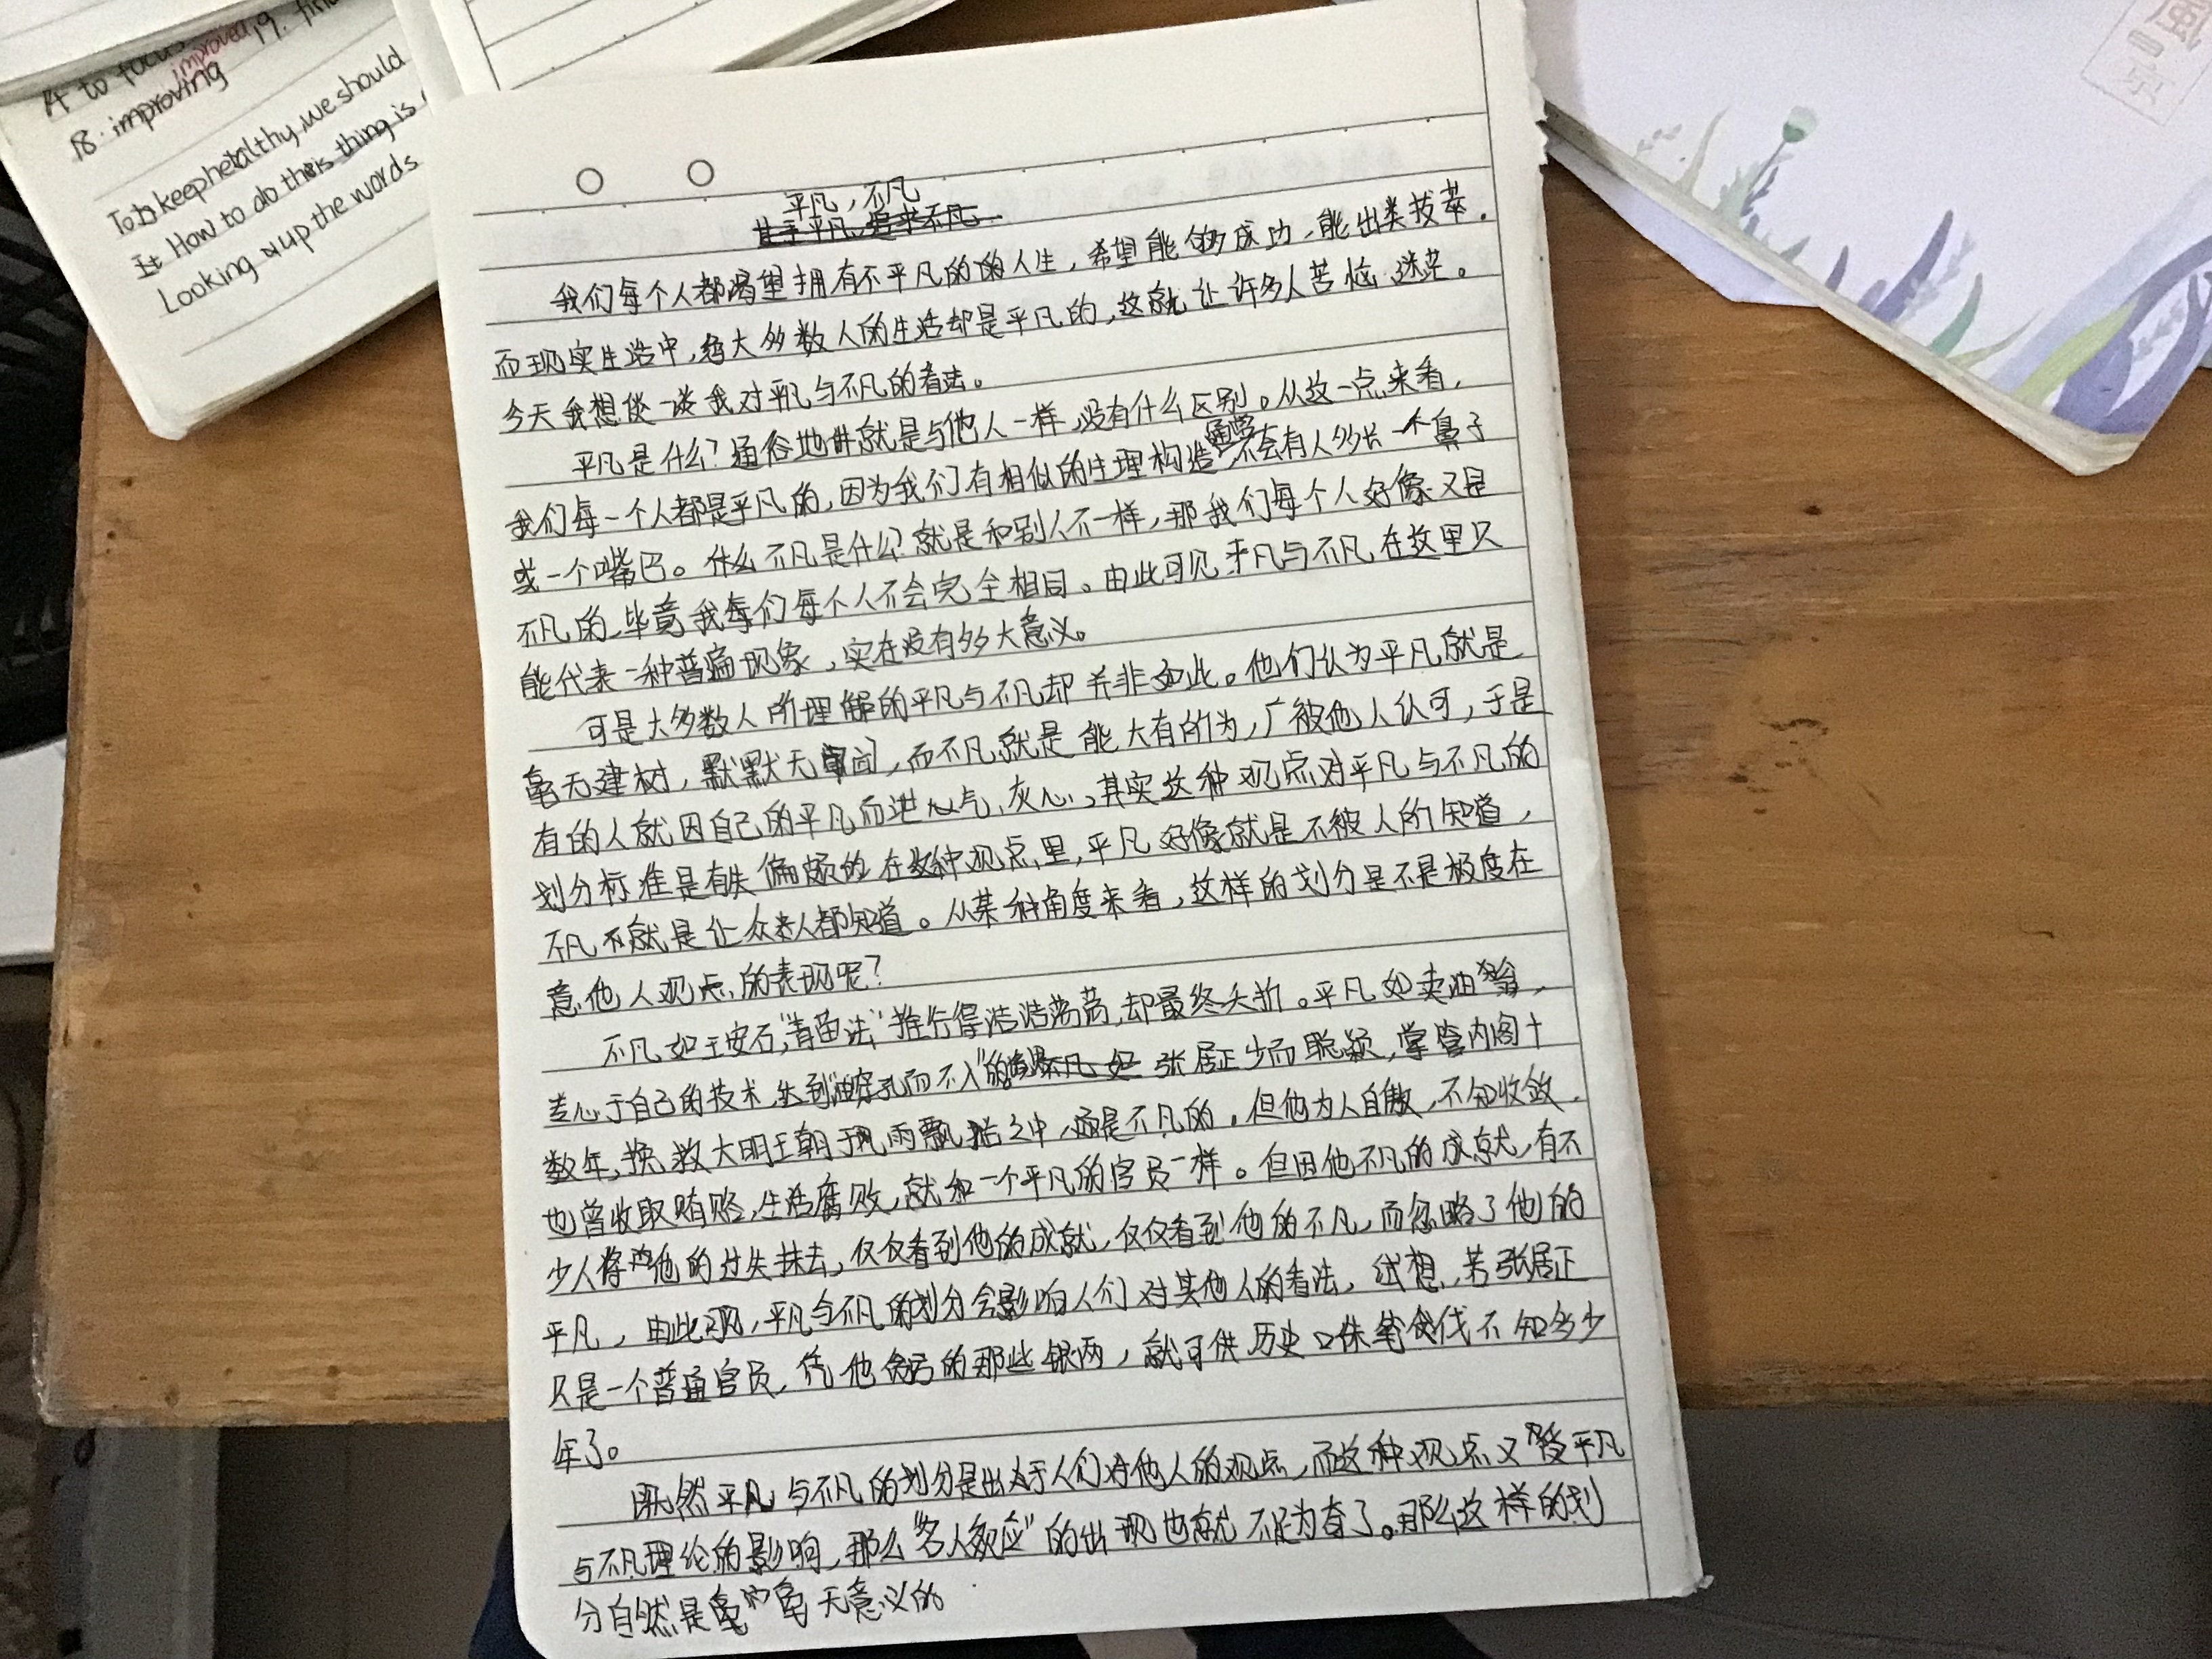 A to focus
improved
19. fin
18. improving
To keep healthy, we should
It How to do this thing is
Looking up the words
平凡,不凡
甘于平凡,追求不凡
我们每个人都渴望拥有不平凡的的人生,希望能够成功,能出类拔萃.
而现实生活中,绝大多数人的生活却是平凡的,这就让许多人苦恼迷茫。
今天我想谈一谈我对平凡与不凡的看法。
平凡是什么?通俗地讲就是与他人一样,没有什么区别。从这一点来看,
我们每一个人都是平凡的,因为我们有相似的生理构造,通常不会有人多长一个鼻子
或一个嘴巴。什么不凡是什么?就是和别人不一样,那我们每个人好像又是
不凡的,毕竟我每们每个人不会完全相同。由此可见平凡与不凡在这里只
能代表一种普遍现象,实在没有多大意义。
可是大多数人所理解的平凡与不凡却并非如此。他们认为平凡就是
毫无建树,默默无闻,而不凡就是能大有所为,广被他人认可,于是
有的人就因自己的平凡而泄气、灰心,其实这种观点对平凡与不凡的
划分标准是有失偏颇的在这种观点里,平凡好像就是不被人所知道,
不凡就是让众人都知道。从某种角度来看,这样的划分是不是极度在
意他人观点的表现呢?
不凡如王安石,"青苗法"推行得浩浩荡荡,却最终夭折。平凡如卖油翁,
专心于自己的技术,达到"油穿孔而不入"的不凡 如 张居正少而聪颖,掌管内阁十
数年,挽救大明王朝于风雨飘摇之中,应是不凡的。但他为人自傲,不知收敛.
也曾收取贿赂,生活腐败,就和一个平凡的官员一样。但因他不凡的成就,有不
少人将他的过失抹去,仅仅看到他的成就,仅仅看到他的不凡,而忽略了他的
平凡,由此观,平凡与不凡的划分会影响人们对其他人的看法,试想,若张居正
只是一个普通官员,凭他贪污的那些银两,就可供历史口诛笔伐不知多少
年了。
既然平凡与不凡的划分是出于人们对他人的观点,而这种观点又受平凡
与不凡理论的影响,那么"名人效应"的出现也就不足为奇了。那么这样的划
分自然是毫无意义的